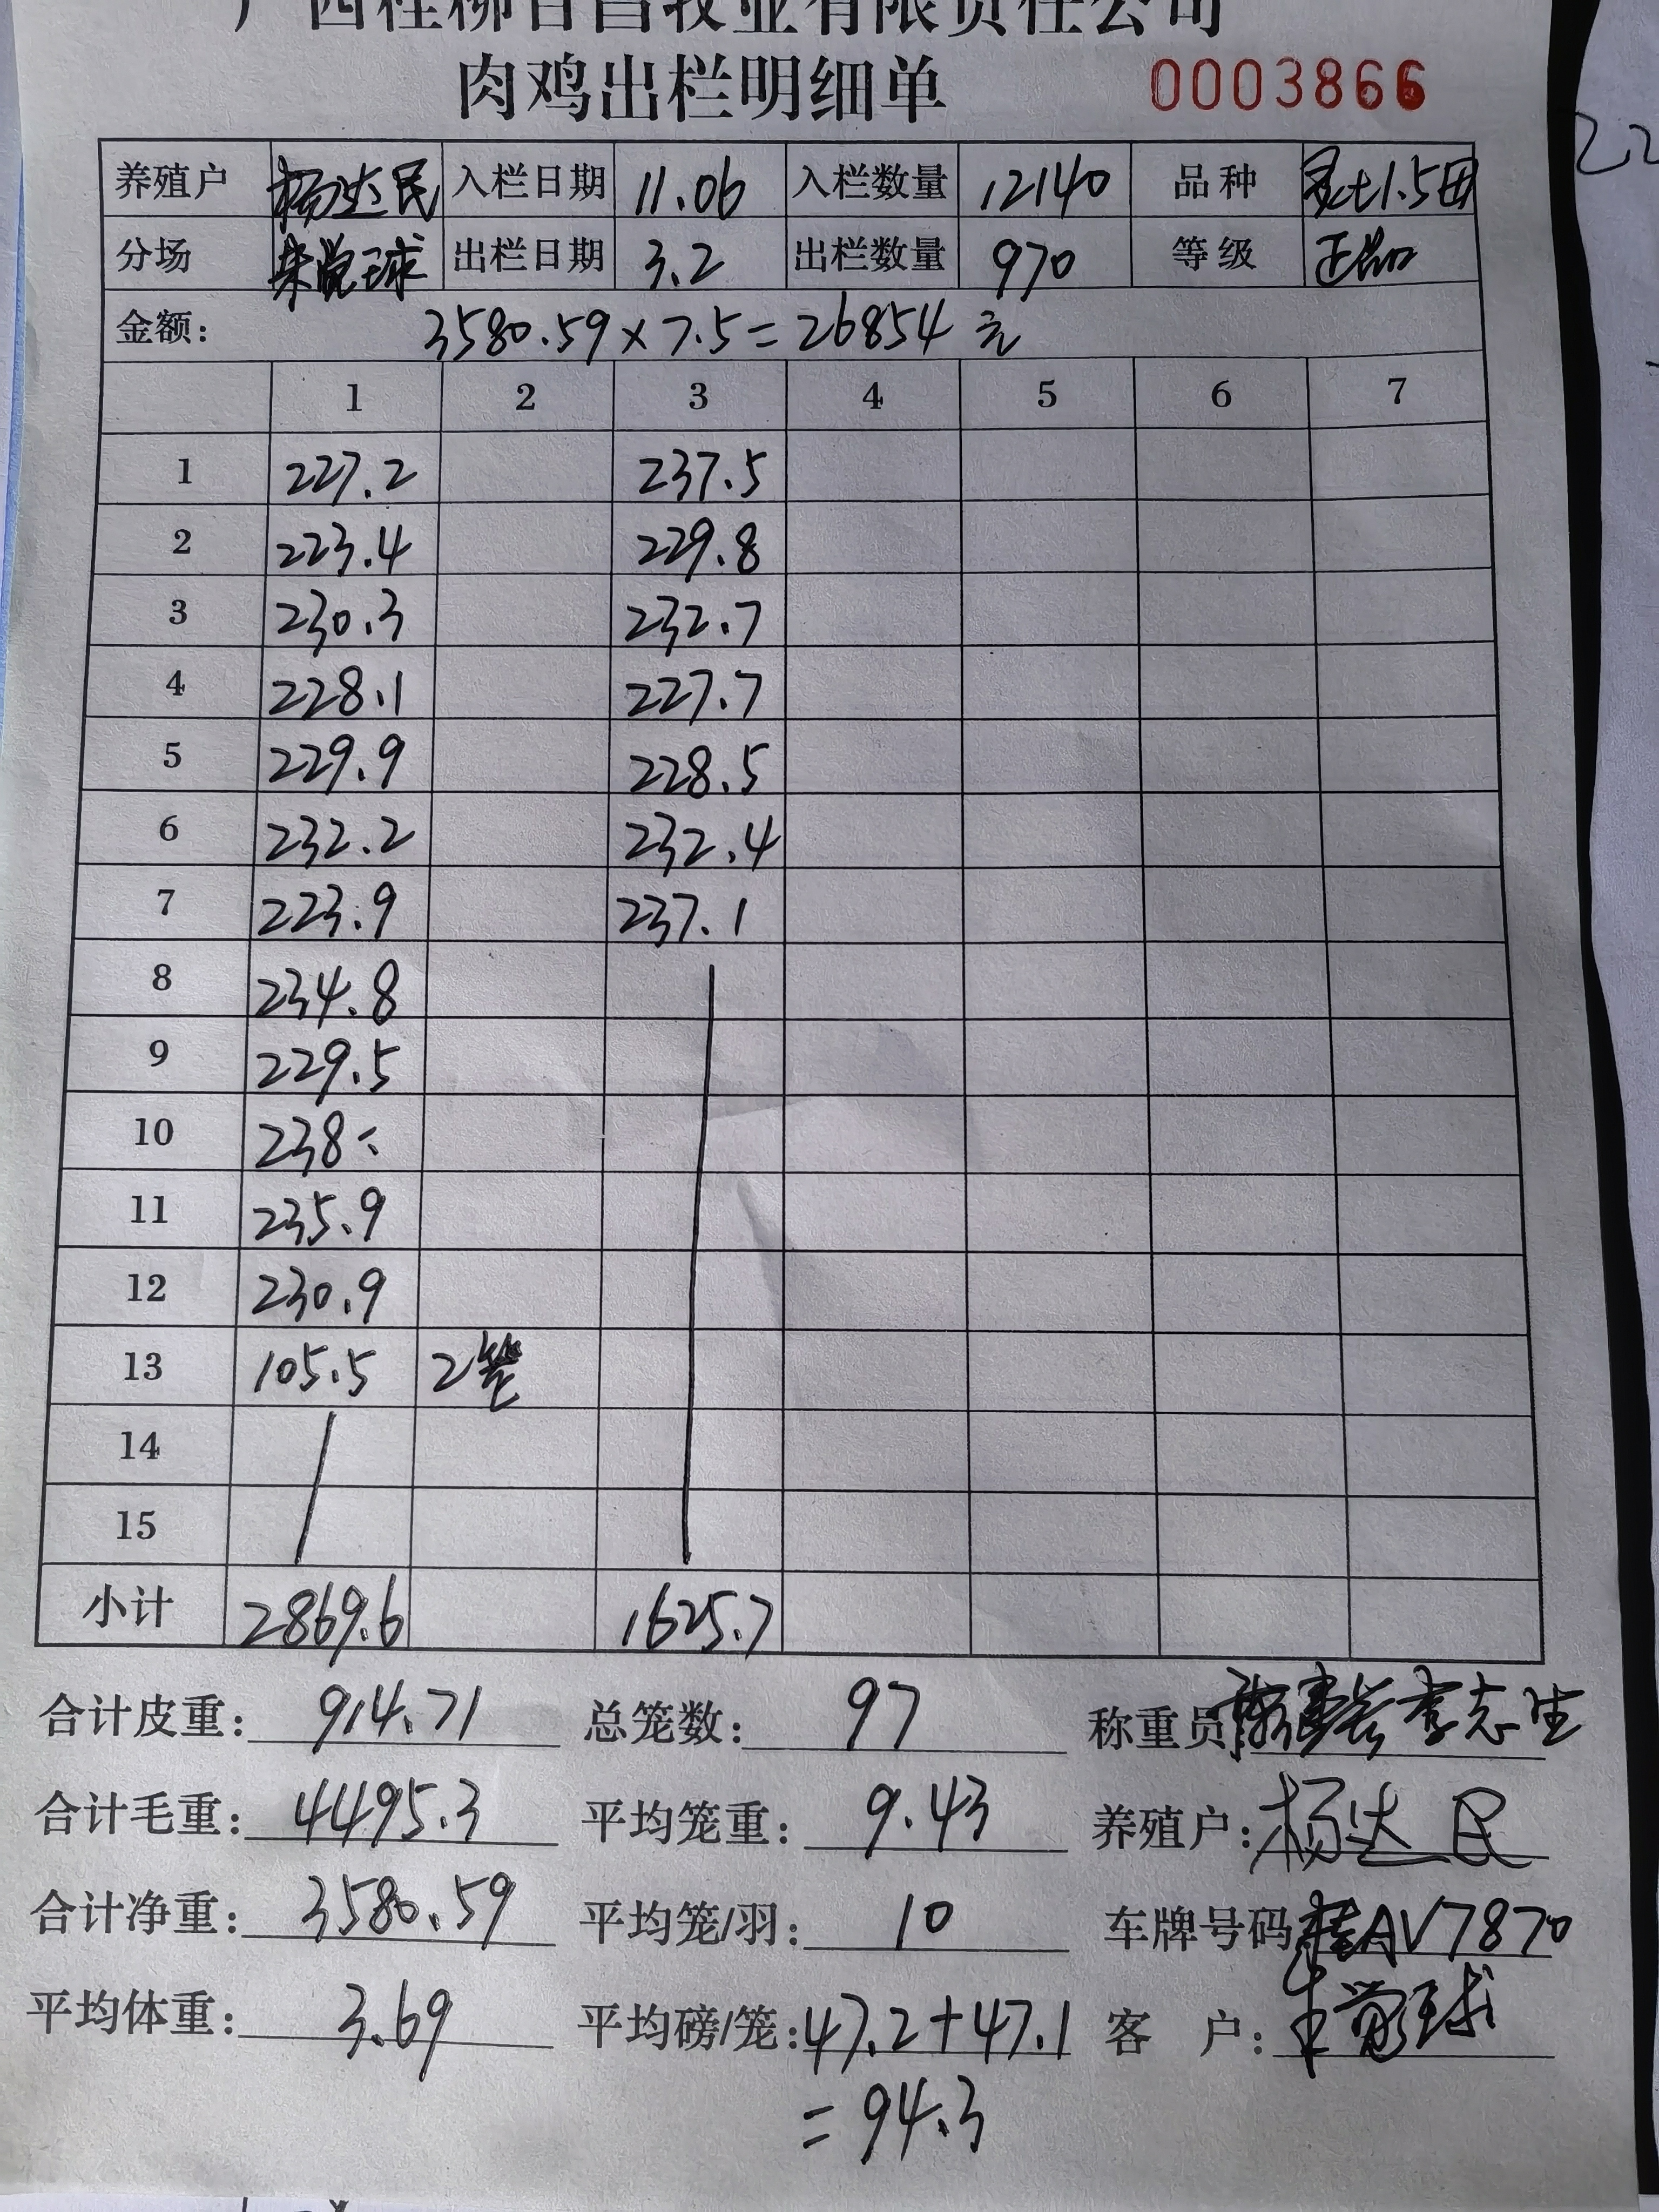 广西桂柳百昌牧业有限责任公司
肉鸡出栏明细单 0003866
养殖户 杨达民 入栏日期 11.06 入栏数量 12140 品种
分场 出栏日期 3.2 出栏数量 970 等级 正品
金额: 3580.59×7.5=26854元
1 2 3 4 5 6 7
1 227.2 237.5
2 223.4 229.8
3 230.3 232.7
4 228.1 227.7
5 229.9 228.5
6 232.2 232.4
7 223.9 237.1
8 234.8
9 229.5
10 238
11 235.9
12 230.9
13 105.5 2笼
14
15
小计 2869.6 1625.7
合计皮重: 914.71 总笼数: 97 称重员 李志生
合计毛重: 4495.3 平均笼重: 9.43 养殖户: 杨达民
合计净重: 3580.59 平均笼/羽: 10 车牌号码 桂AV7870
平均体重: 3.69 平均磅/笼: 47.2+47.1 客户:
=94.3